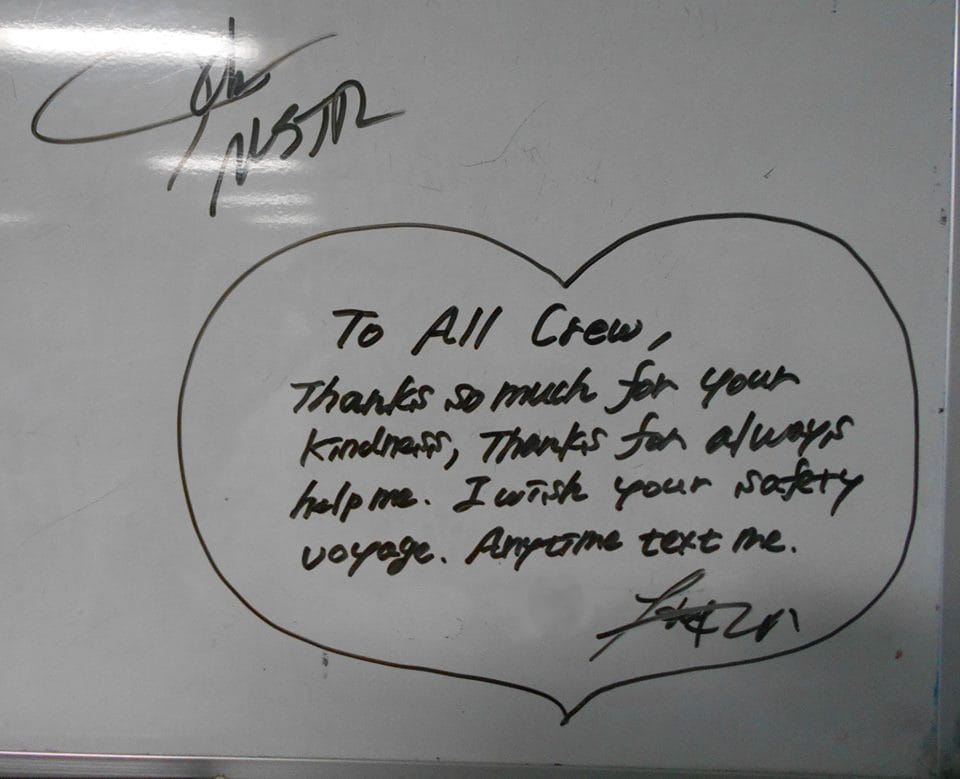 To All Crew,
Thanks so much for your
kindness, Thanks for always
help me. I wish your safety
voyage. Anytime text me.